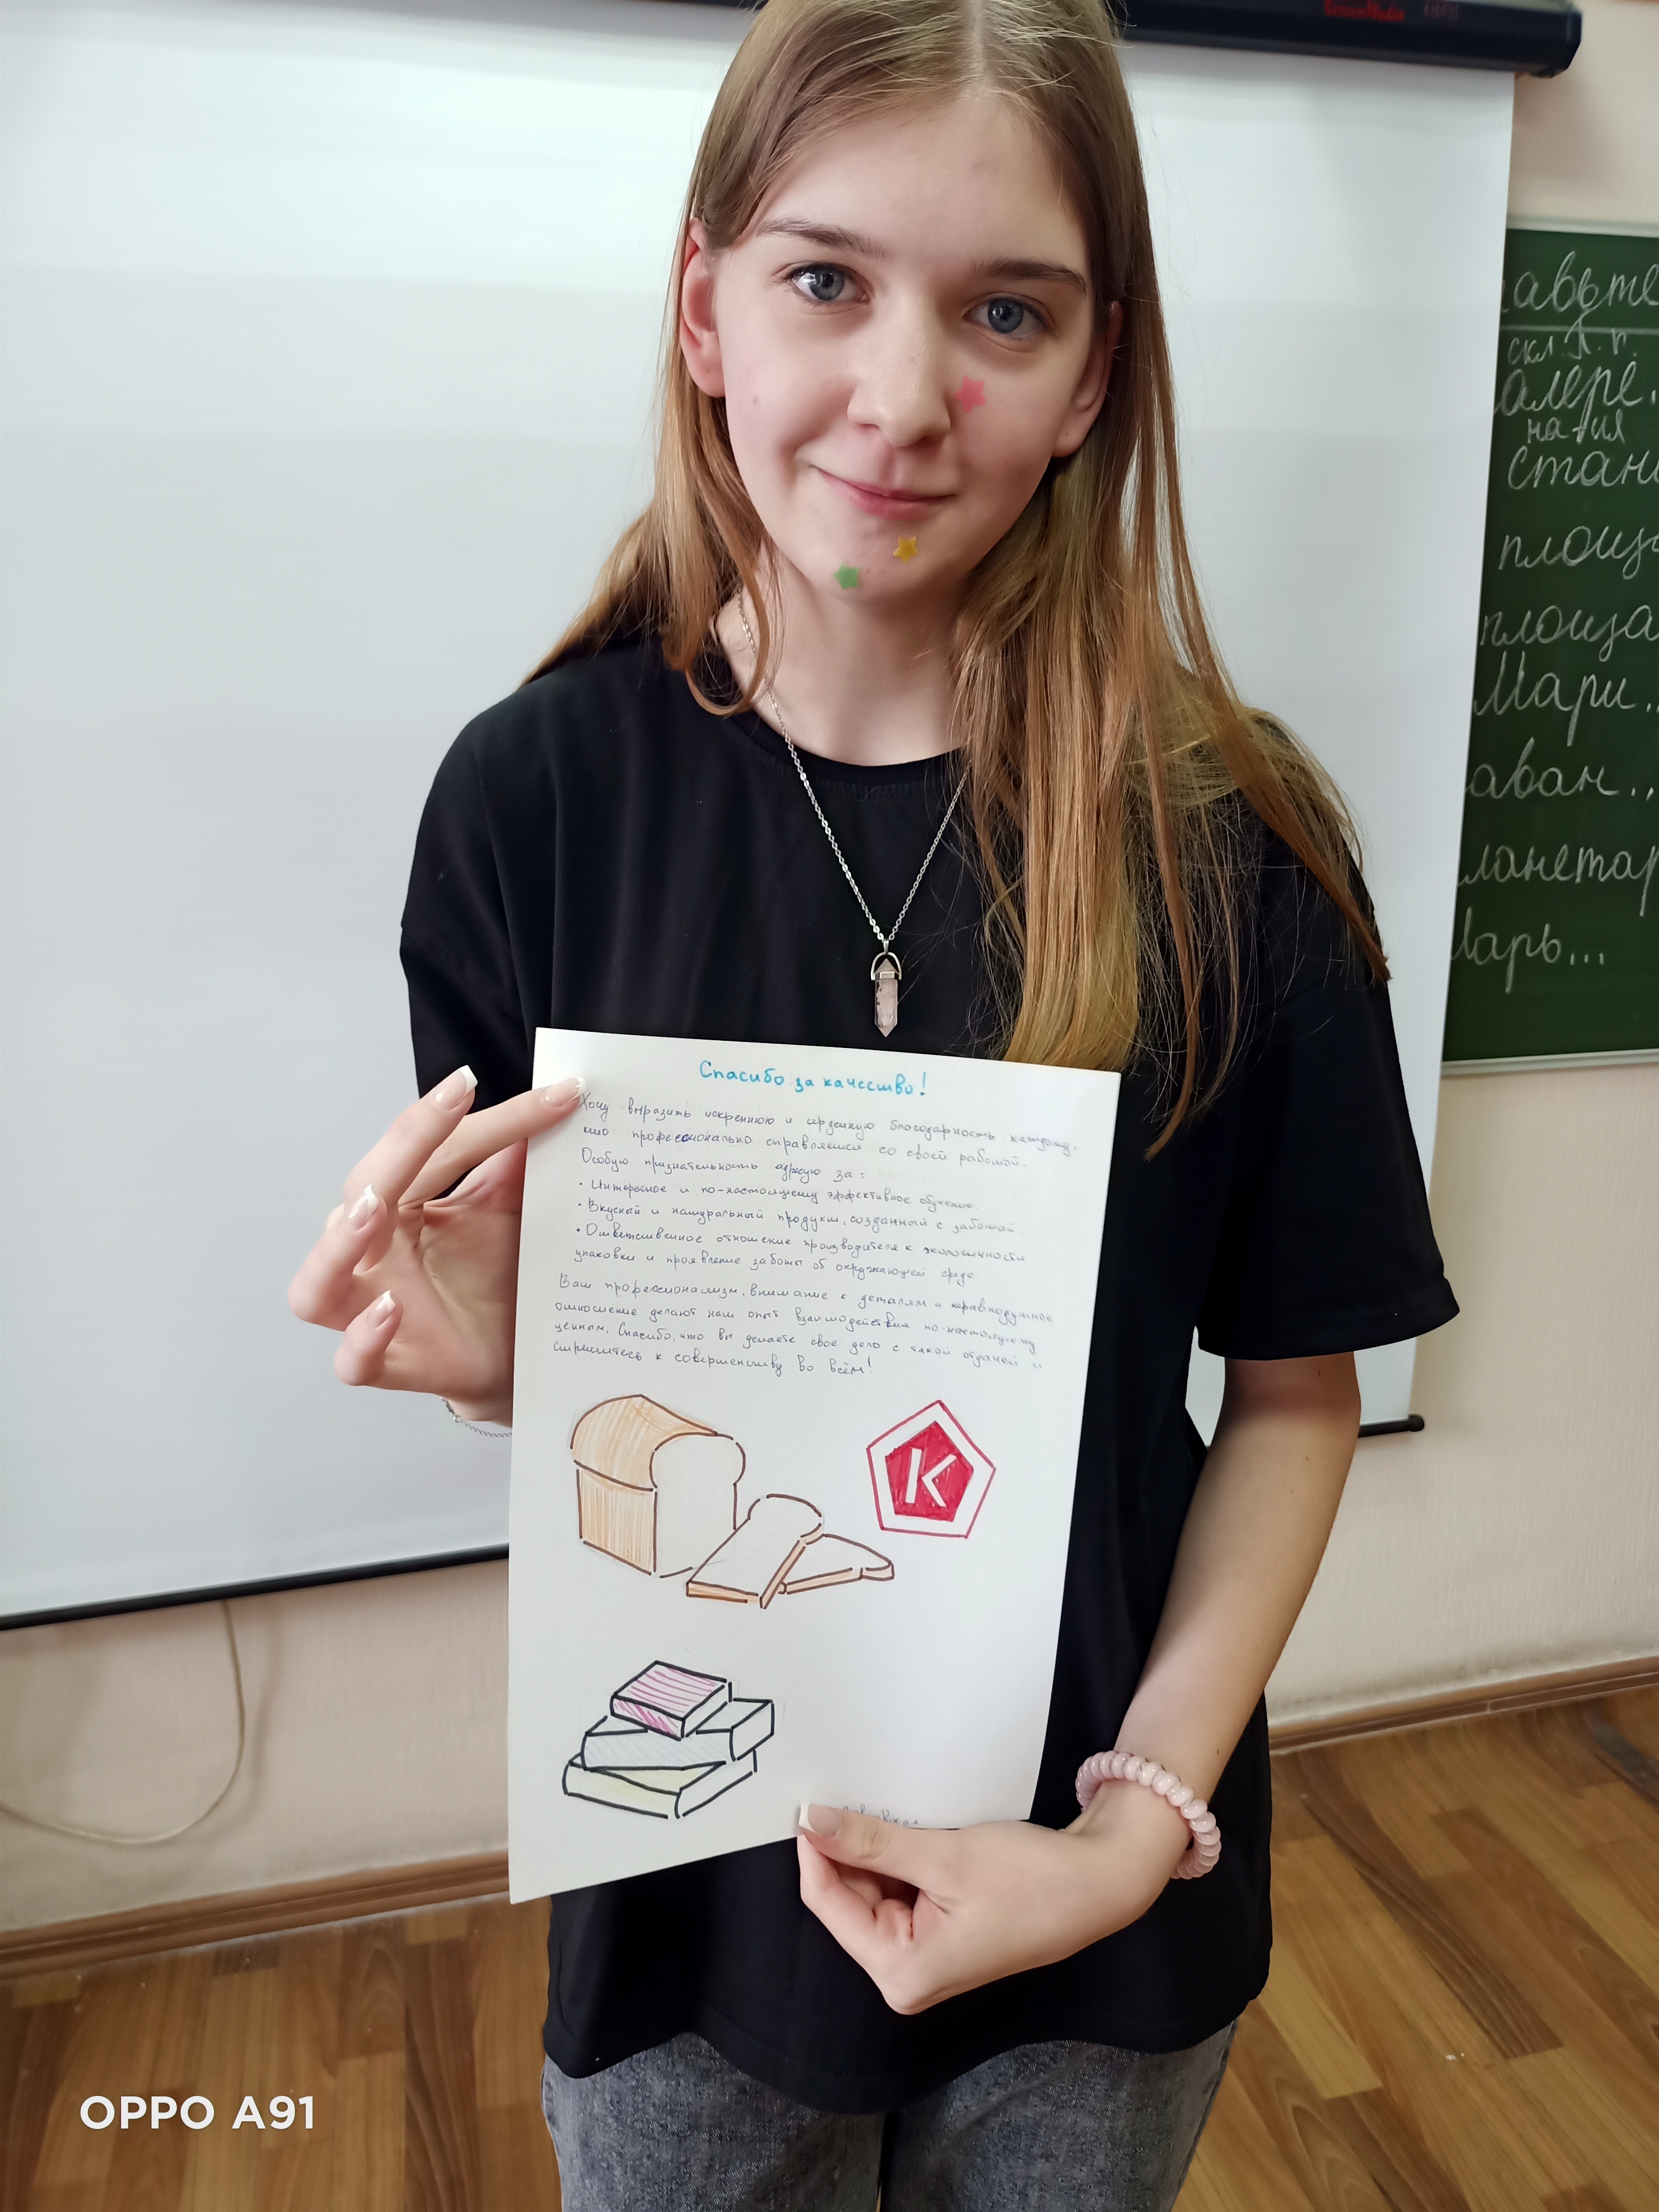 ScreenMedia
Спасибо за качество!
Хочу выразить искреннюю и сердечную благодарность каждому,
кто профессионально справляется со своей работой.
Особую признательность адресую за:
• Интересное и по-настоящему эффективное обучение.
• Вкусный и натуральный продукт, созданный с заботой.
• Ответственное отношение производителя к экологичности
упаковки и проявление заботы об окружающей среде
Ваш профессионализм, внимание к деталям и неравнодушное
отношение делают наш опыт взаимодействия по-настоящему
ценным. Спасибо, что вы делаете свое дело с такой отдачей и
стремитесь к совершенству во всём!
К
авьте
скл. П. п.
алере.
на +ия
стан
площа
площа
Мари..
аван..
ланетар
Царь...
OPPO A91